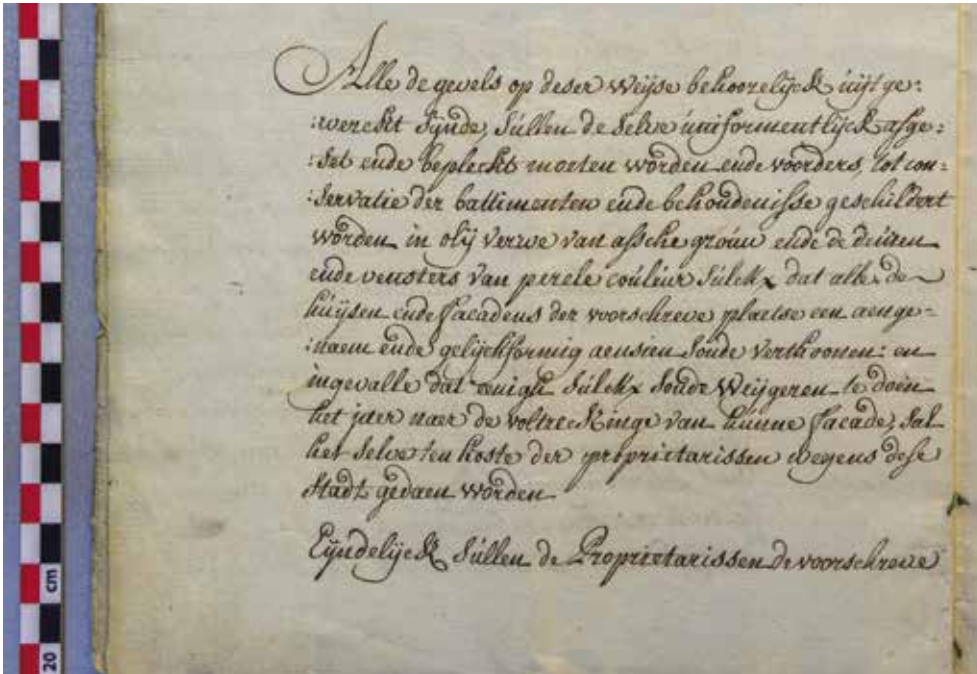 Alle de gevels op deser weijse behoorelijck uijt ge:
:werckt sijnde, sullen de selve uniformentlijck afge:
:set ende bepleckt moeten worden ende voorders, tot con:
:servatie der battimenten ende behoudenisse geschildert
worden in olij verwe van assche grouw ende de deuren
ende vensters van perele couleur sulckx dat alle de
huijsen ende facadens der voorschreve plaetse een aenge:
:naem ende gelijckformig aensien soude verthoonen: en
ingevalle dat eenigh sulckx soude weijgeren te doen
het jaer naer de voltreckinge van hunne facade, sal
het selve ten koste der proprietarissen wegens dese
stadt gedaen worden
Eijndelijck sullen de Proprietarissen de voorschreve
cm
20